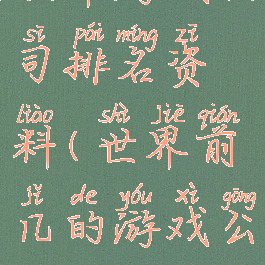 sī pái míng zī
司排名资
liào shì jiè qián
料(世界前
jǐ de yóu xì gōng
几的游戏公